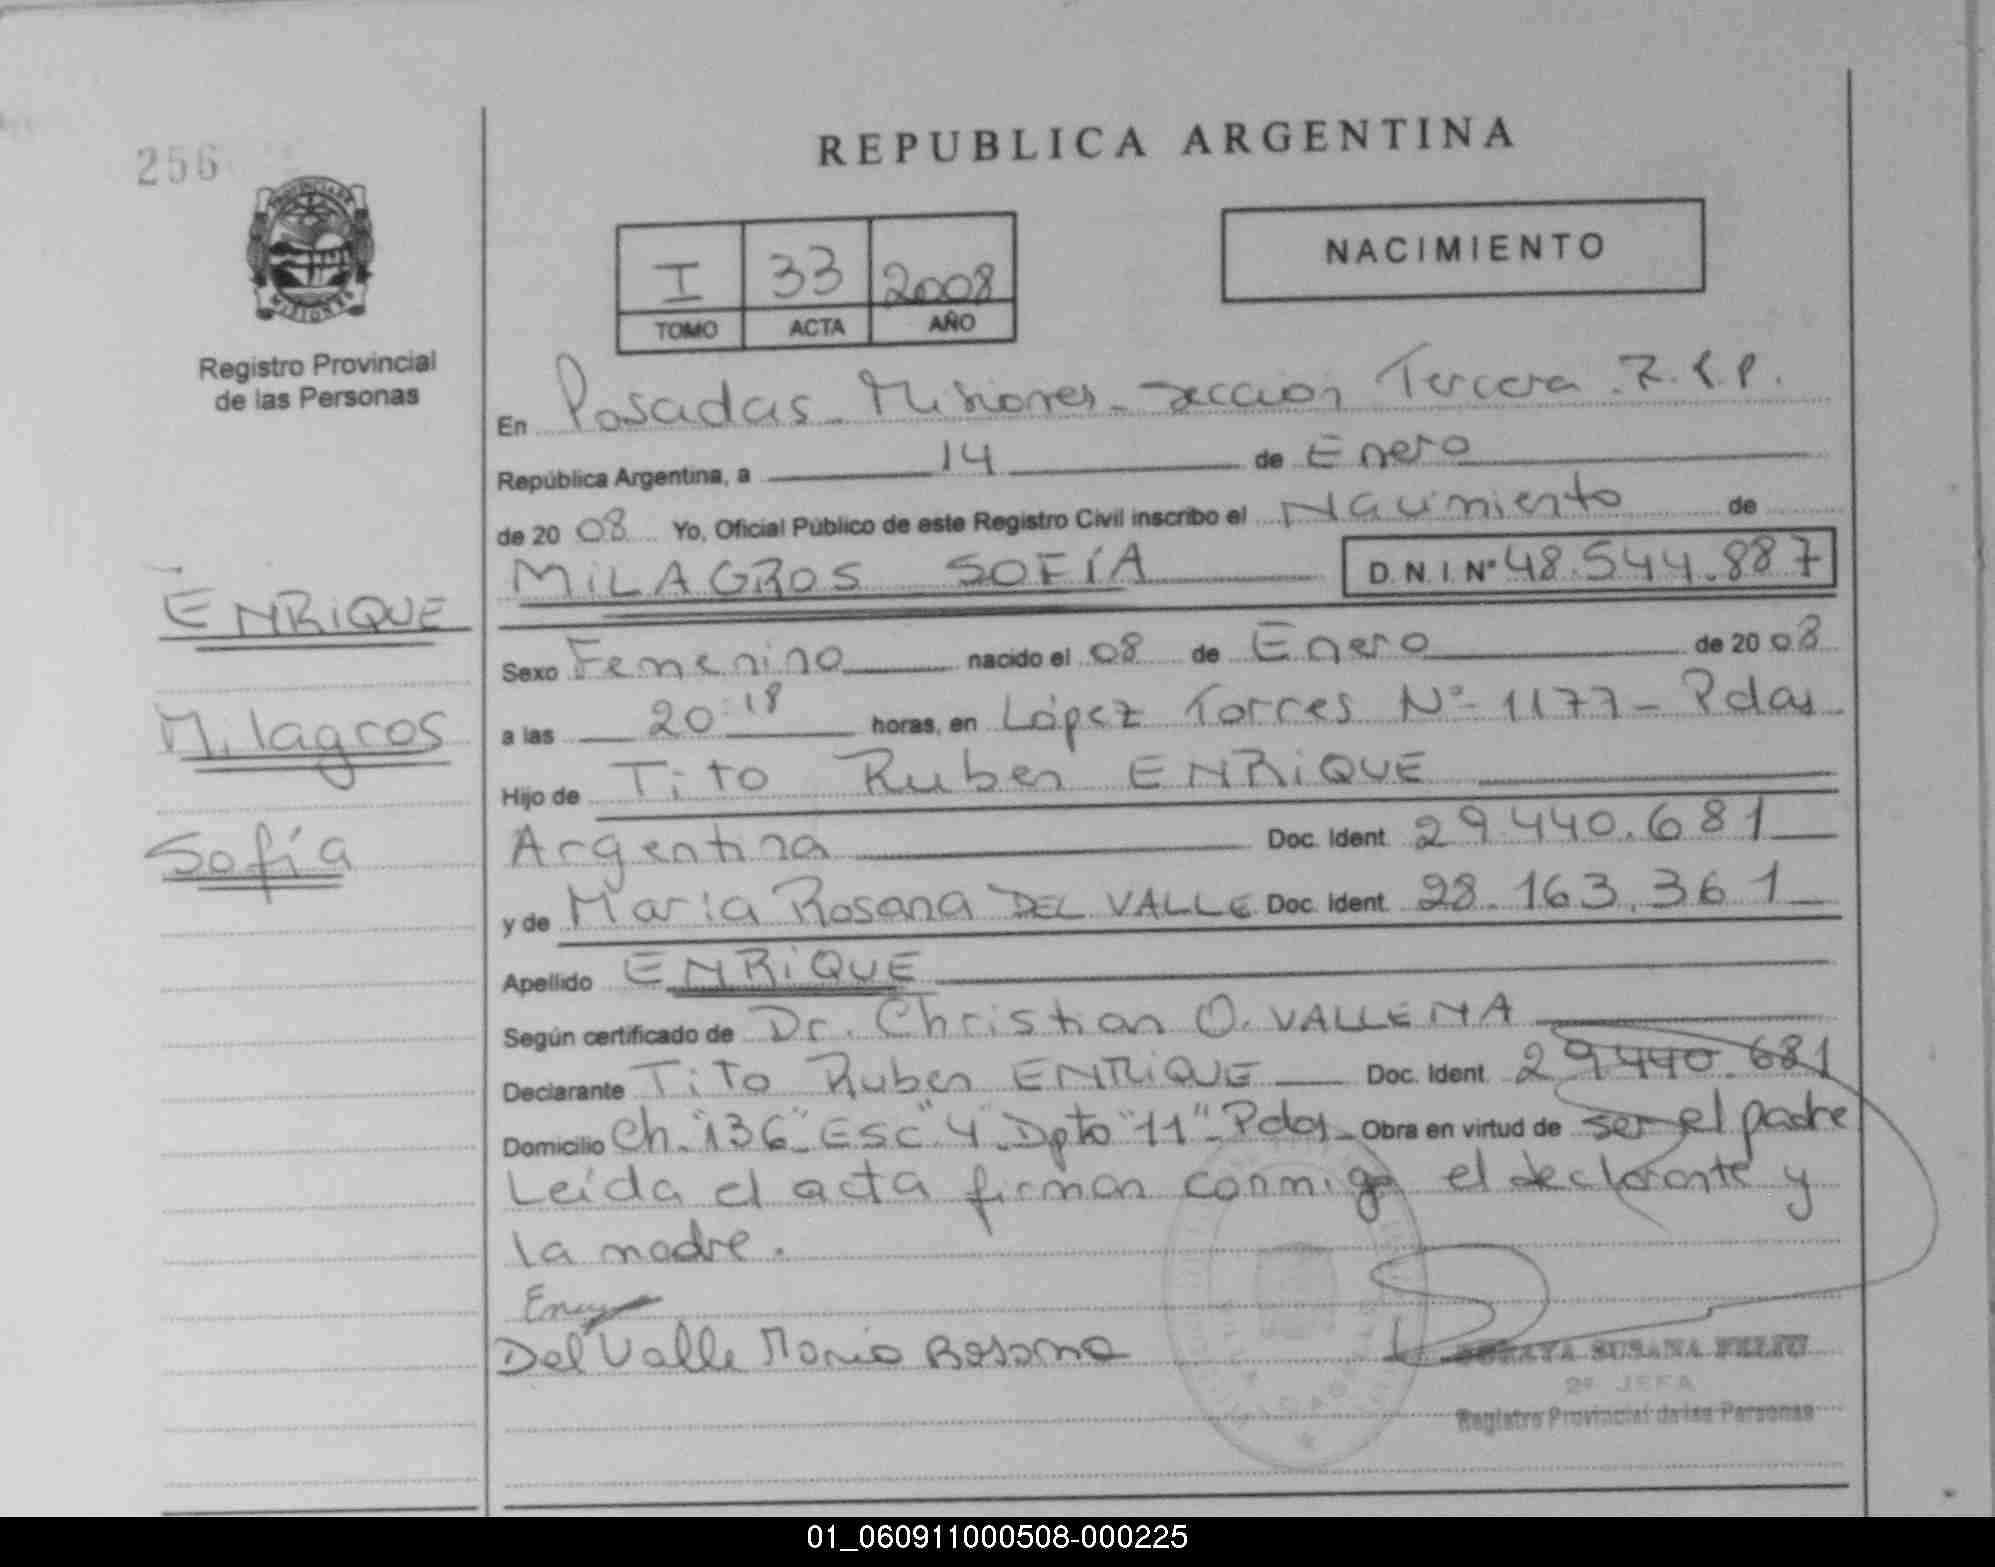 256
REPUBLICA ARGENTINA
PROVINCIA DE
MISIONES
Registro Provincial
de las Personas
I 33 2008
TOMO ACTA AÑO
NACIMIENTO
En Posadas - Misiones - Sección Tercera R.P.P.
República Argentina, a 14 de Enero
de 2008 Yo, Oficial Público de este Registro Civil inscribo el Nacimiento de
MILAGROS SOFÍA D.N.I. Nº 48.544.887
ENRIQUE
Milagros
Sofía
Sexo Femenino nacido el 08 de Enero de 2008
a las 20:18 horas, en López Torres Nº 1177 - Pdas
Hijo de Tito Ruben ENRIQUE
Argentina Doc. Ident. 29.440.681
y de María Rosana DEL VALLE Doc. Ident. 28.163.361
Apellido ENRIQUE
Según certificado de Dr. Christian O. VALLENA
Declarante Tito Ruben ENRIQUE Doc. Ident. 29.440.681
Domicilio Ch. "136" Esc "4" Dpto "11" - Pdas - Obra en virtud de ser el padre
Leída el acta firman conmigo el declarante y
la madre.
Del Valle Maria Rosana
SUSANA
2º JEFA
Registro Provincial de las Personas
01_060911000508-000225